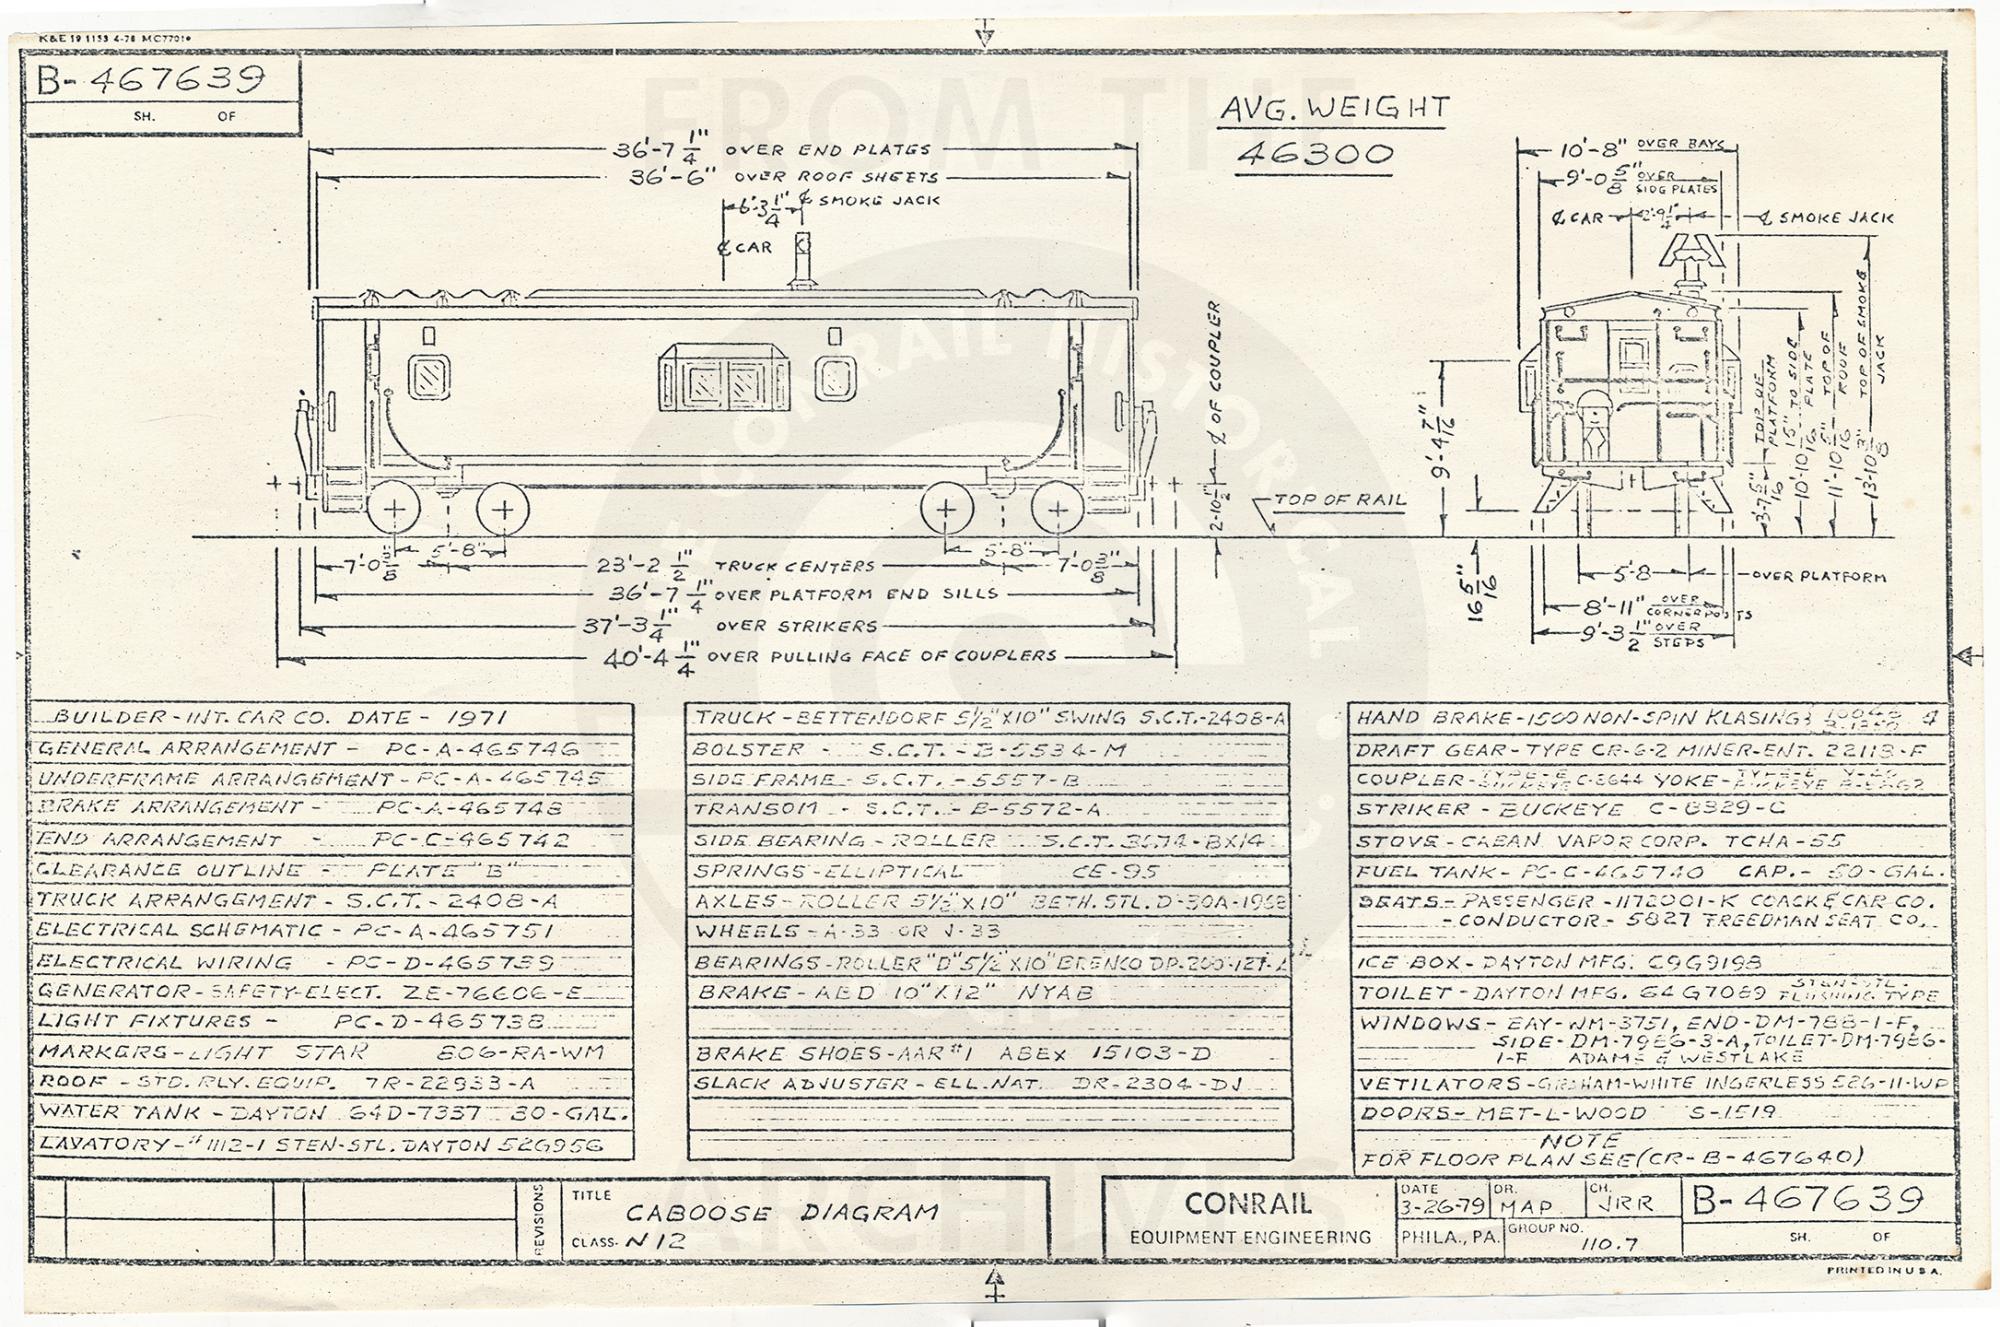 K&E 19 1153 4-78 MC7701
B-467639
SH. OF
AVG. WEIGHT
46300
36'-7 1/4" OVER END PLATES
36'-6" OVER ROOF SHEETS
6'-3 1/4" ℄ SMOKE JACK
℄ CAR
10'-8" OVER BAYS
9'-0 5/8" OVER SIDE PLATES
℄ CAR 2'-9 1/4" ℄ SMOKE JACK
2'-10 1/2" ℄ OF COUPLER
TOP OF RAIL
9'-4 7/16"
16 5/16"
3'-7 5/16" TOP OF PLATFORM
10'-10 15/16" TO SIDE PLATE
11'-10 5/16" TOP OF ROOF
13'-10 3/8" TOP OF SMOKE JACK
7'-0 3/8" 5'-8" 23'-2 1/2" TRUCK CENTERS 5'-8" 7'-0 3/8"
36'-7 1/4" OVER PLATFORM END SILLS
37'-3 1/4" OVER STRIKERS
40'-4 1/4" OVER PULLING FACE OF COUPLERS
5'-8 OVER PLATFORM
8'-11" OVER CORNERPOSTS
9'-3 1/2" OVER STEPS
BUILDER-INT. CAR CO. DATE - 1971
GENERAL ARRANGEMENT - PC-A-465746
UNDERFRAME ARRANGEMENT - PC-A-465745
BRAKE ARRANGEMENT - PC-A-465748
END ARRANGEMENT - PC-C-465742
CLEARANCE OUTLINE - PLATE "B"
TRUCK ARRANGEMENT - S.C.T. - 2408-A
ELECTRICAL SCHEMATIC - PC-A-465751
ELECTRICAL WIRING - PC-D-465739
GENERATOR-SAFETY-ELECT. ZE-76606-E
LIGHT FIXTURES - PC-D-465738
MARKERS-LIGHT STAR 806-RA-WM
ROOF - STD. RLY. EQUIP. 7R-22933-A
WATER TANK - DAYTON 64D-7337 30-GAL.
LAVATORY-#1112-1 STEN-STL. DAYTON 52G956
TRUCK - BETTENDORF 5½"X10" SWING S.C.T.-2408-A
BOLSTER - S.C.T. - B-5534-M
SIDE FRAME - S.C.T. - 5557-B
TRANSOM - S.C.T. - B-5572-A
SIDE BEARING - ROLLER S.C.T. 3674-BX14
SPRINGS-ELLIPTICAL CE-95
AXLES-ROLLER 5½"X10" BETH. STL. D-30A-1968
WHEELS - A-33 OR J-33
BEARINGS-ROLLER "D" 5½"X10" BRENCO DP-200-127-A
BRAKE - ABD 10"X12" NYAB
BRAKE SHOES-AAR #1 ABEX 15103-D
SLACK ADJUSTER - ELL.NAT. DR-2304-DJ
HAND BRAKE-1500 NON-SPIN KLASING
DRAFT GEAR-TYPE CR-6-2 MINER-ENT. 22113-F
COUPLER-TYPE-E C-8644 YOKE-
STRIKER - BUCKEYE C-8329-C
STOVE - CABAN VAPOR CORP. TCHA-55
FUEL TANK - PC-C-465740 CAP. - 50-GAL.
SEATS - PASSENGER -1172001-K COACK & CAR CO.
- CONDUCTOR - 5827 FREEDMAN SEAT CO.
ICE BOX - DAYTON MFG. C9G9198
TOILET - DAYTON MFG. 64G7069 STEN-STL. FLUSHING TYPE
WINDOWS - BAY-WM-3751, END-DM-788-1-F,
SIDE-DM-7986-3-A, TOILET-DM-7986-
1-F ADAMS & WESTLAKE
VETILATORS-GRAHAM-WHITE INGERLESS 526-11-WP
DOORS - MET-L-WOOD S-1519
NOTE
FOR FLOOR PLAN SEE (CR-B-467640)
REVISIONS
TITLE
CABOOSE DIAGRAM
CLASS- N12
CONRAIL
EQUIPMENT ENGINEERING
DATE 3-26-79 DR. MAP CH. JRR
PHILA., PA. GROUP NO. 110.7
B-467639
SH. OF
PRINTED IN U S A.
FROM THE
THE CONRAIL HISTORICAL
ARCHIVES